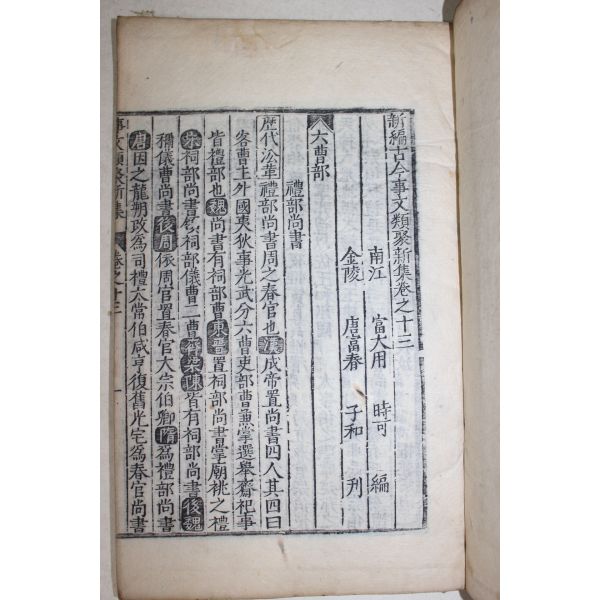 新編古今事文類聚新集卷之十三
南江　富大用　時可　編
金陵　唐富春　子和　刋
六曹部
禮部尚書
歷代沿革禮部尚書周之春官也漢成帝置尚書四人其四曰
客曹主外國夷狄事光武分六曹吏部曹兼掌選舉齋祀事
皆禮部也魏尚書有祠部曹東晉置祠部尚書掌廟祧之禮
宋祠部尚書領祠部儀曹二曹齊梁陳皆有祠部尚書後魏
稱儀曹尚書後周依周官置春官大宗伯卿隋為禮部尚書
唐因之龍朔改為司禮太常伯咸亨復舊光宅為春官尚書
事文類聚新集　卷之十三　一